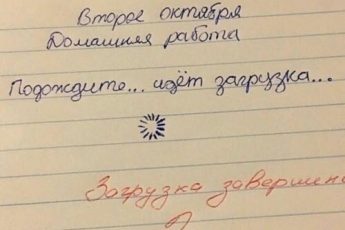 Второе октября
Домашняя работа
Подождите... идёт загрузка...
Загрузка завершена